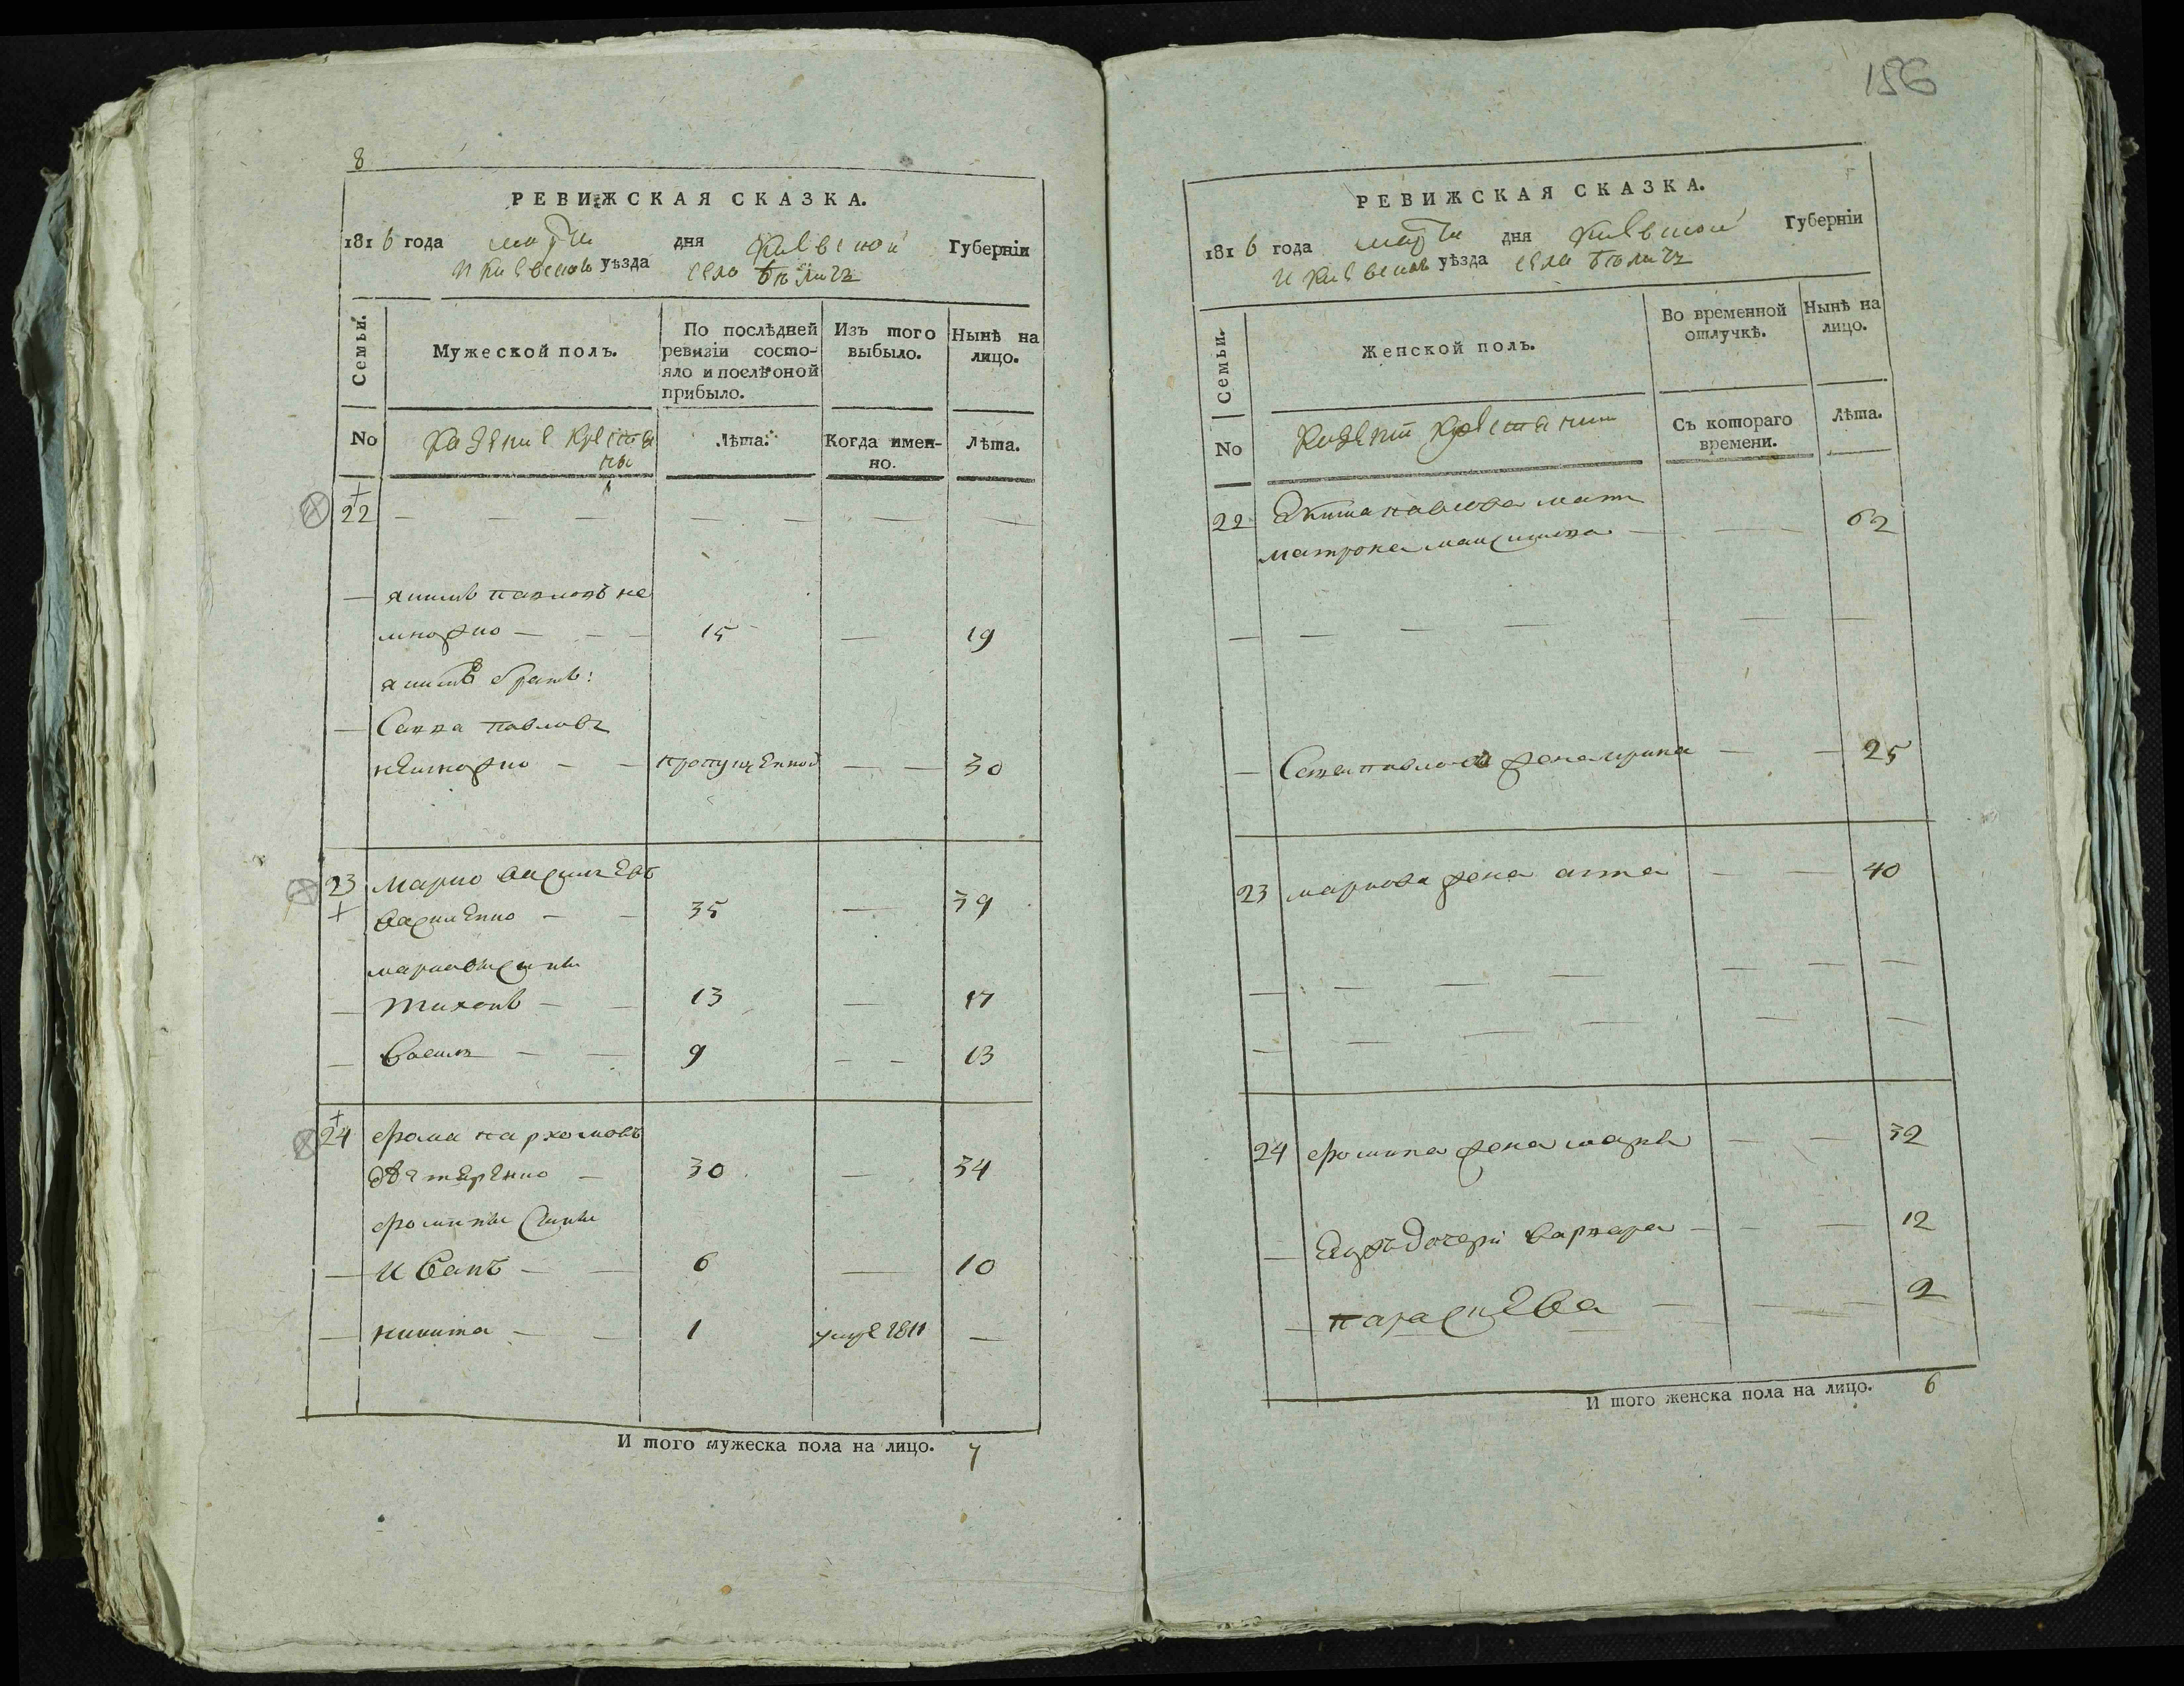 8
РЕВИЖСКАЯ СКАЗКА.
1816 года марта дня Киевской Губерніи
и Киевскаго уѣзда села Бѣличъ
Семьи.
Мужеской полъ.
По послѣдней ревизіи состо-
яло и послѣ оной
прибыло.
Изъ того
выбыло.
Нынѣ на
лицо.
No
Казенние крестья
ны
Лѣта.
Когда имен-
но.
Лѣта.
22
павловъ не
15 19
братъ:
Савка павловъ
пропущенной 30
23 Марко васильевъ
василенко 35 39
марковы сины
Тихонъ 13 17
Василь 9 13
24 фома пархомовъ
30 34
фомины сины
Иванъ 6 10
никита 1 умре 1811
И того мужеска пола на лицо. 7
156
РЕВИЖСКАЯ СКАЗКА.
1816 года марта дня Киевской Губерніи
и Киевскаго уѣзда села Бѣличъ
Семьи.
Женской полъ.
Во временной
отлучкѣ.
Нынѣ на
лицо.
No
крестьянки
Съ котораго
времени.
Лѣта.
22 павлова мати
матрона 62
жена ирина 25
23 маркова жена анна 40
24 фомина жена марья 32
дочери варвара 12
параскева 2
И того женска пола на лицо. 6